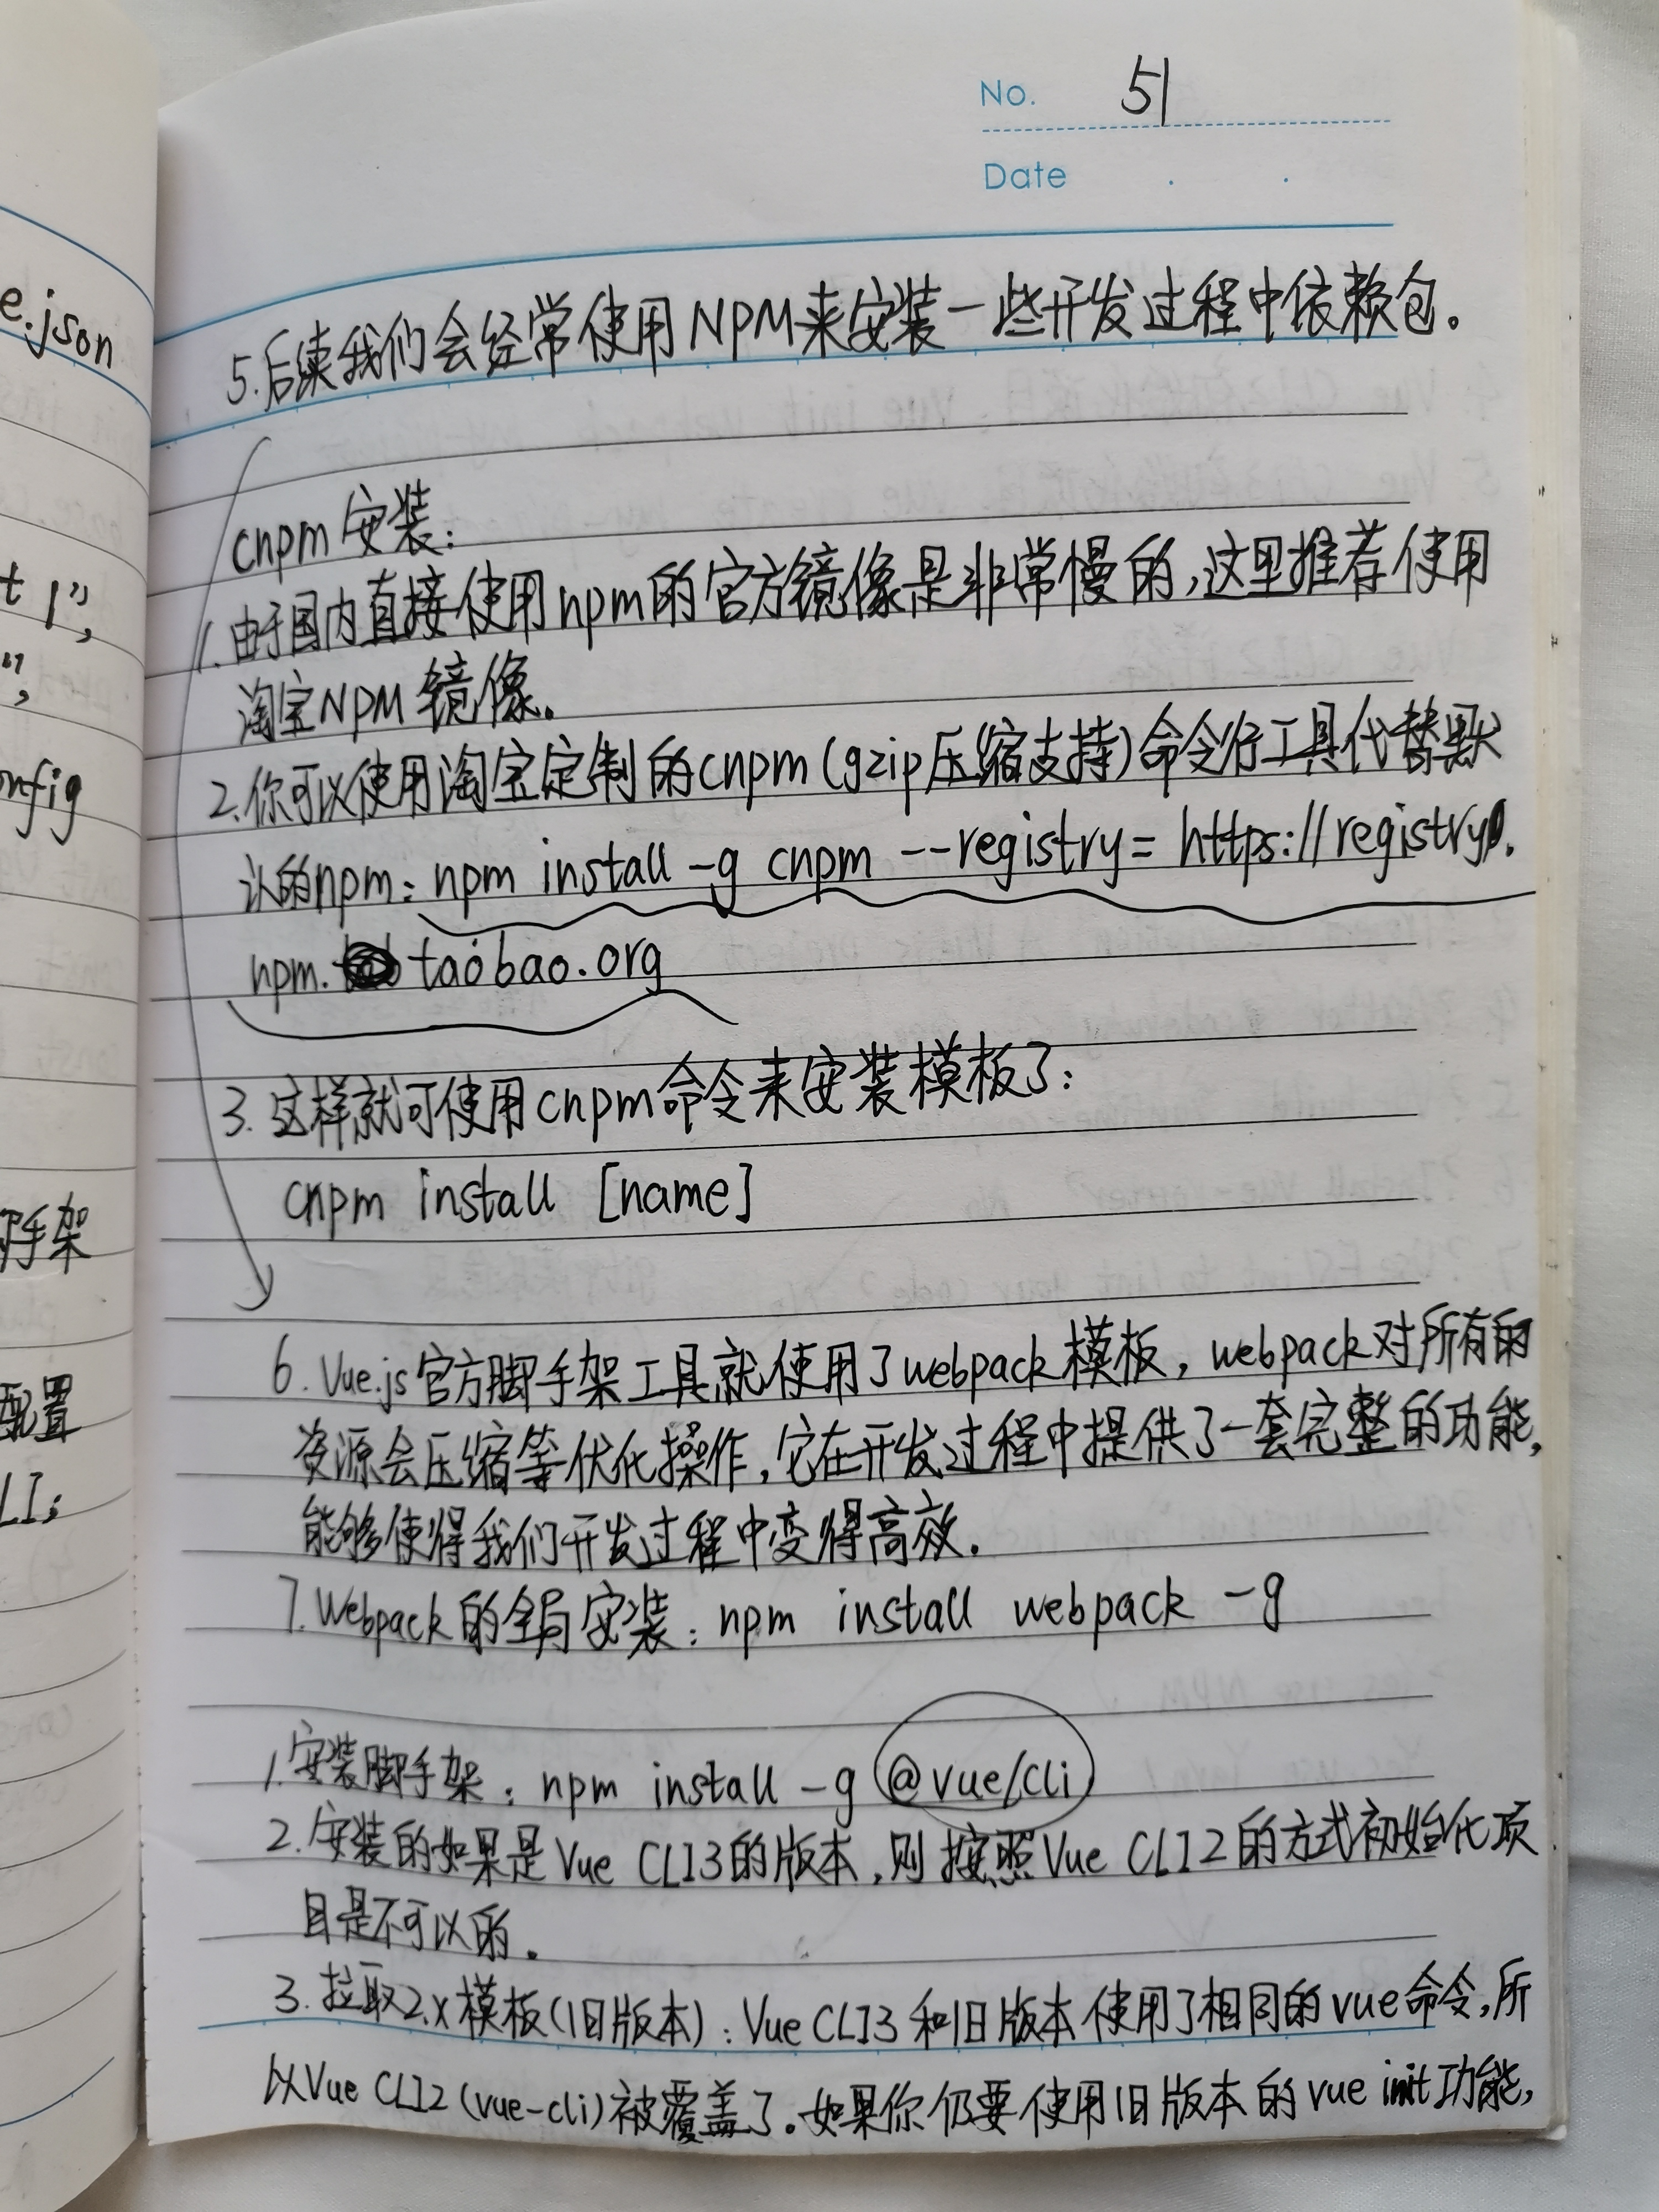 e.json
t 1",
",
nfig
手架
配置
LI;
No. 51
Date . .
5.后续我们会经常使用NPM来安装一些开发过程中依赖包。
cnpm安装:
1.由于国内直接使用npm的官方镜像是非常慢的,这里推荐使用
淘宝NPM镜像。
2.你可以使用淘宝定制的cnpm(gzip压缩支持)命令行工具代替默
认的npm: npm install -g cnpm --registry= https://registry.
npm. taobao.org
3.这样就可使用cnpm命令来安装模板了:
cnpm install [name]
6.Vue.js官方脚手架工具就使用了webpack模板, webpack对所有的
资源会压缩等优化操作,它在开发过程中提供了一套完整的功能,
能够使得我们开发过程中变得高效.
7.Webpack的全局安装: npm install webpack -g
1.安装脚手架: npm install -g @vue/cli
2.安装的如果是Vue CLI3的版本,则按照Vue CLI2的方式初始化项
目是不可以的.
3.拉取2.x模板(旧版本): Vue CLI3和旧版本使用了相同的vue命令,所
以Vue CLI2(vue-cli)被覆盖了。如果你仍要使用旧版本的vue init功能,